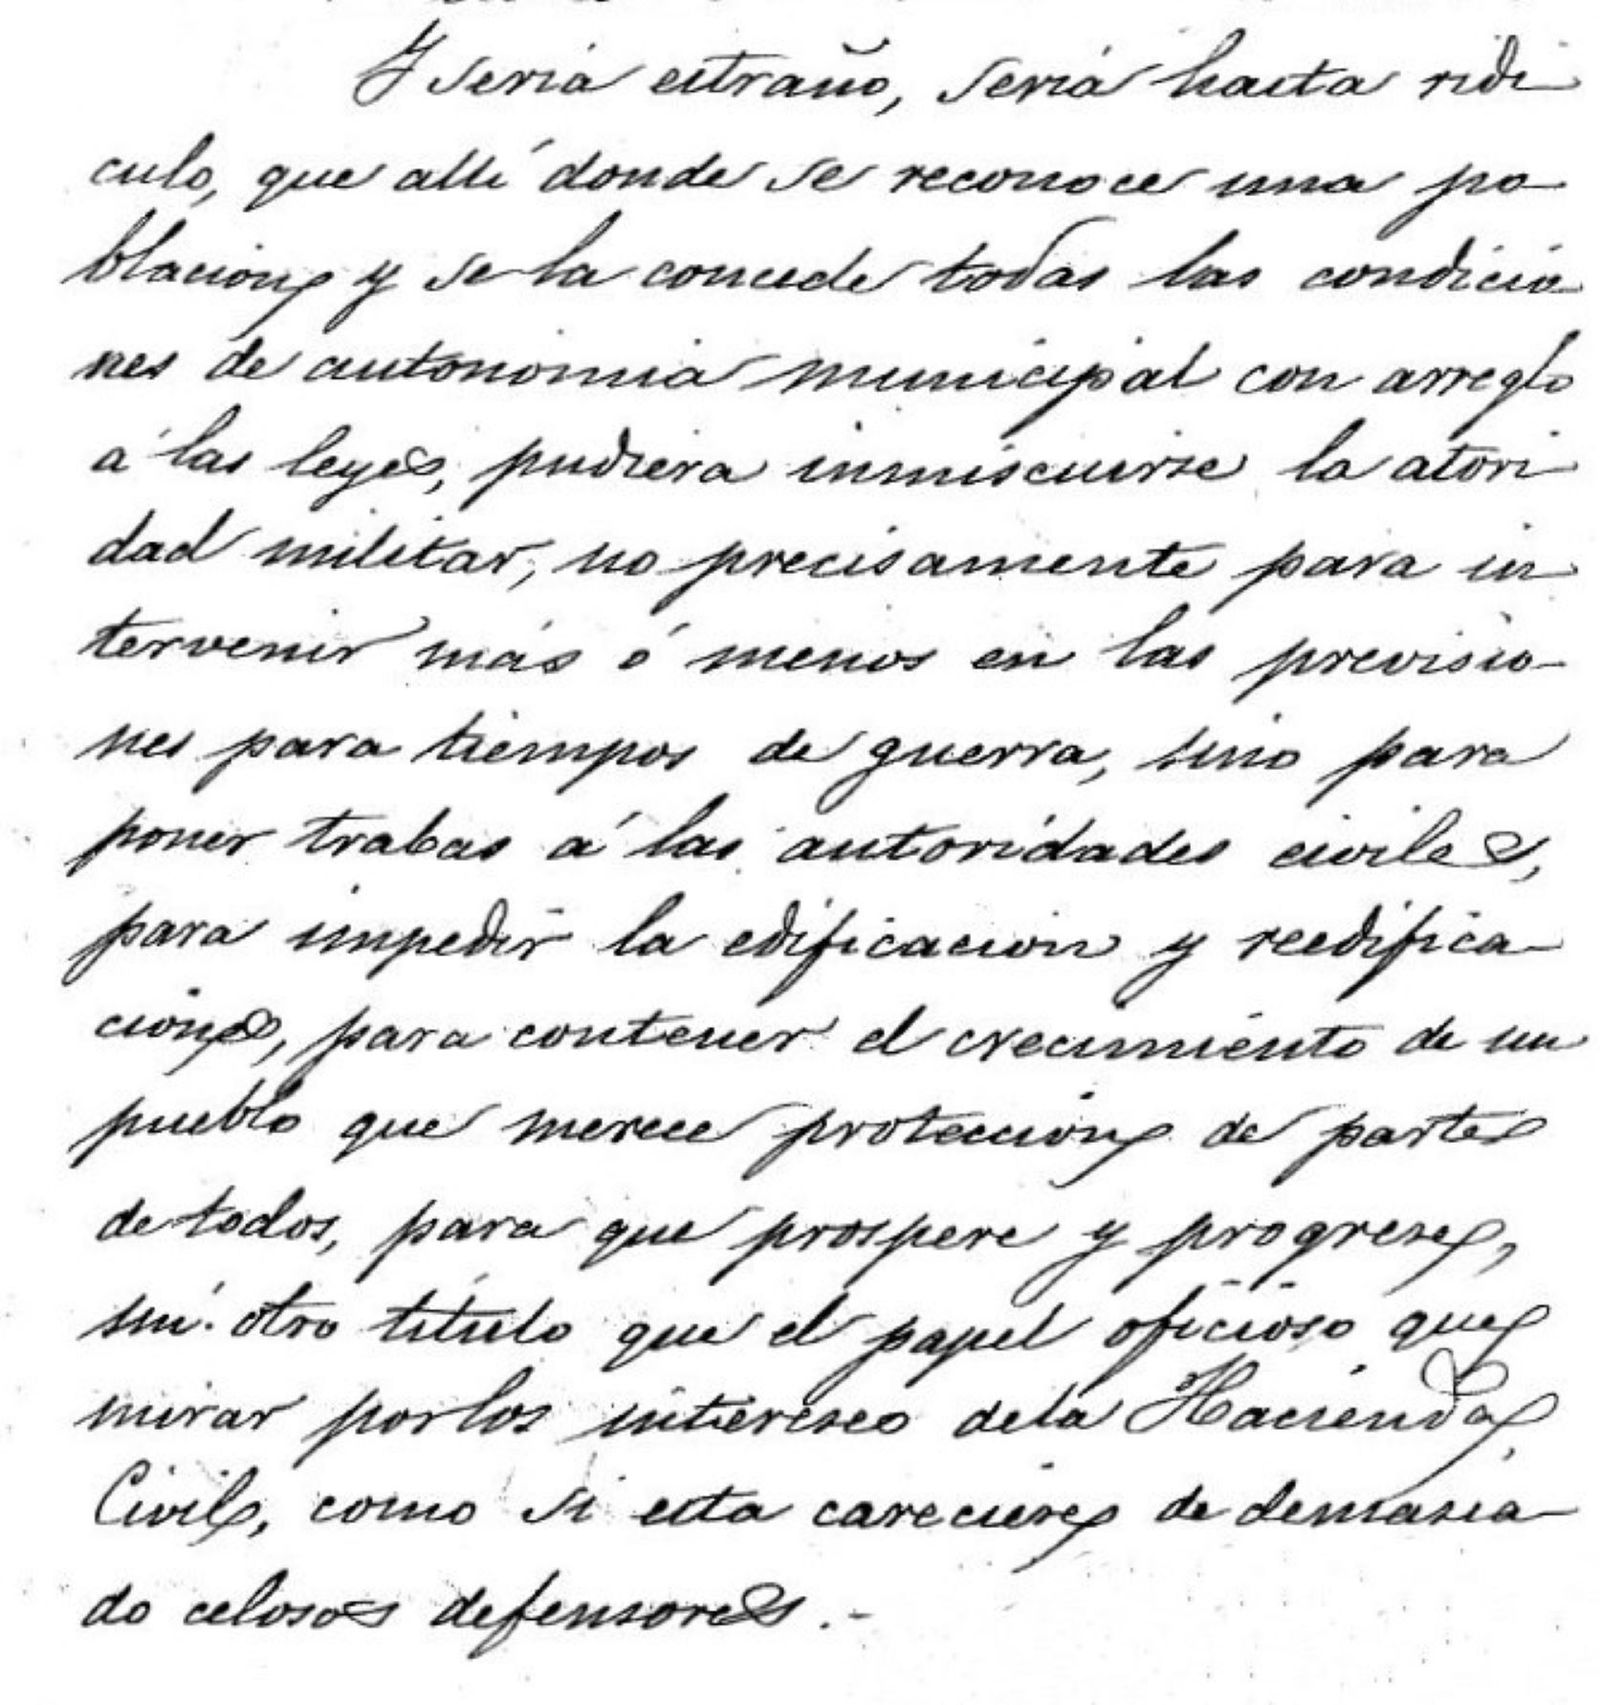 Y seria estraño, seria hasta ridi
culo, que allí donde se reconoce una po-
blacion y se la concede todas las condicio-
nes de autonomia municipal con arreglo
á las leyes, pudiera inmiscuirse la atori
dad militar, no precisamente para in
tervenir más ó menos en las previsio-
nes para tiempos de guerra, sino para
poner trabas á las autoridades civiles,
para impedir la edificacion y reedifica-
ciones, para contener el crecimiento de un
pueblo que merece proteccion de parte
de todos, para que prospere y progrese,
sin otro título que el papel oficioso que
mirar por los intereses de la Hacienda
Civil, como si esta careciere de demasia-
do celosos defensores.-